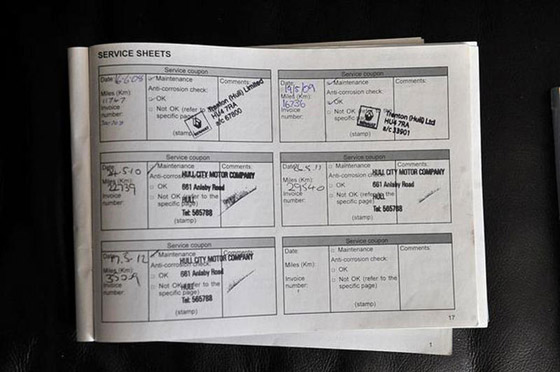 SERVICE SHEETS
Service coupon
Date: 6-6-08
Miles (Km): 11747
Invoice number:
Maintenance
Anti-corrosion check:
OK
Not OK (refer to the specific page)
(stamp)
Comments:
Trenton (Hull) Limited
HU4 7RA
a/c 67800
Service coupon
Date: 19/5/09
Miles (Km): 16736
Invoice number:
Maintenance
Anti-corrosion check:
OK
Not OK (refer to the specific page)
(stamp)
Comments:
Trenton (Hull) Ltd
HU4 7RA
a/c 33901
Service coupon
Date: 24.5.10
Miles (Km): 22739
Invoice number:
Maintenance
Anti-corrosion
OK
Not OK (refer to the specific page)
(stamp)
Comments:
HULL CITY MOTOR COMPANY
661 Anlaby Road
HULL
Tel: 565788
Service coupon
Date: 5.11
Miles (Km): 29540
Invoice number:
Maintenance
Anti-corrosion
OK
Not OK (refer to the specific page)
(stamp)
Comments:
HULL CITY MOTOR COMPANY
661 Anlaby Road
HULL
Tel: 565788
Service coupon
Date: 17.5.12
Miles (Km):
Invoice number:
Maintenance
Anti-corrosion
OK
Not OK (refer to the specific page)
(stamp)
Comments:
HULL CITY MOTOR COMPANY
661 Anlaby Road
HULL
Tel: 565788
Service coupon
Date:
Miles (Km):
Invoice number:
Maintenance
Anti-corrosion check:
OK
Not OK (refer to the specific page)
(stamp)
Comments:
17
1